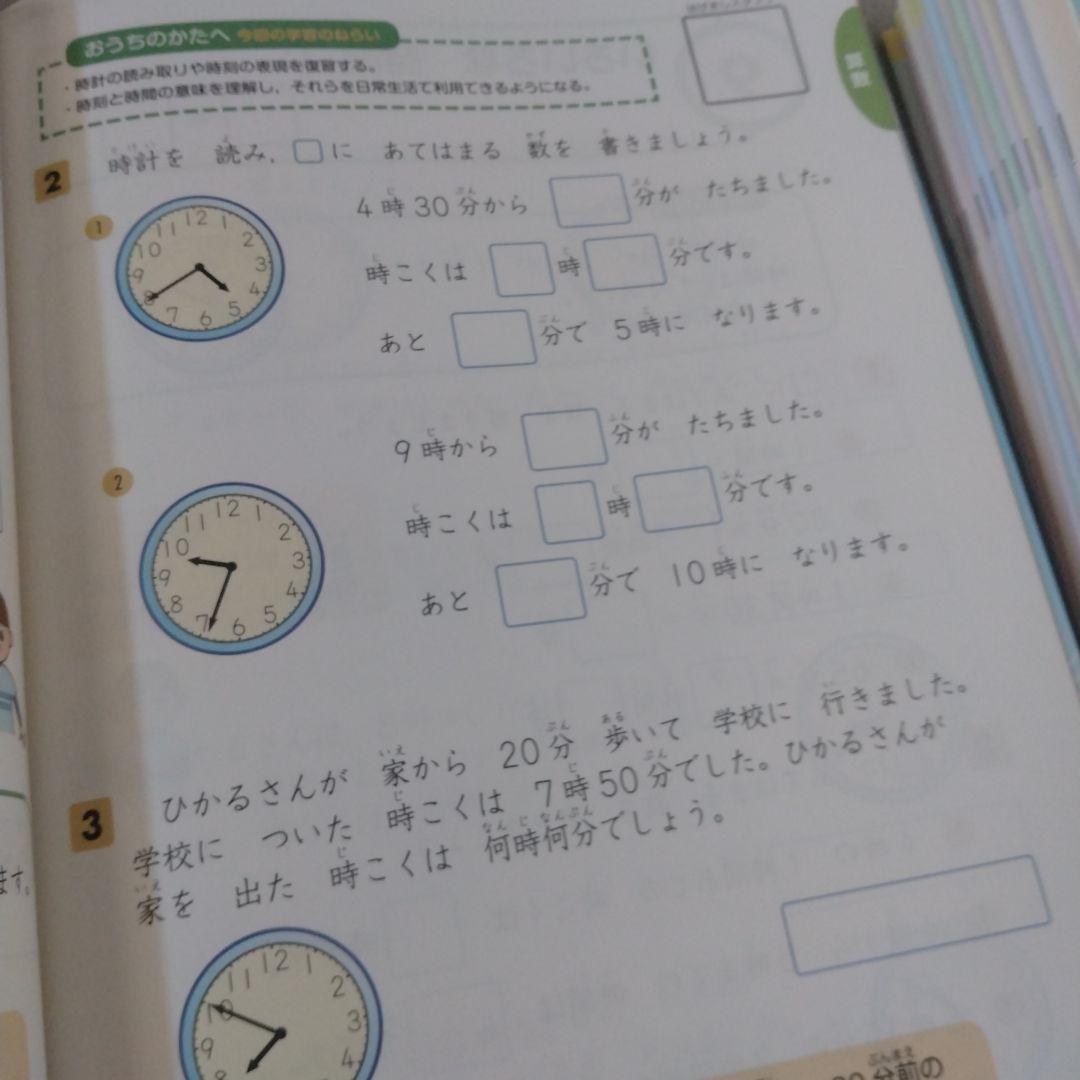 おうちのかたへ 今回の学習のねらい
・時計の読み取りや時刻の表現を復習する。
・時刻と時間の意味を理解し、それらを日常生活で利用できるようになる。
算数
2 時計を 読み、□に あてはまる 数を 書きましょう。
1
12 1 2 3 4 5 6 7 8 9 10 11
4時30分から □分が たちました。
時こくは □時□分です。
あと □分で 5時に なります。
2
12 1 2 3 4 5 6 7 8 9 10 11
9時から □分が たちました。
時こくは □時□分です。
あと □分で 10時に なります。
3 ひかるさんが 家から 20分 歩いて 学校に 行きました。
学校に ついた 時こくは 7時50分でした。ひかるさんが
家を 出た 時こくは 何時何分でしょう。
12 1 2 3 4 8 9 10 11
ます。
分前の